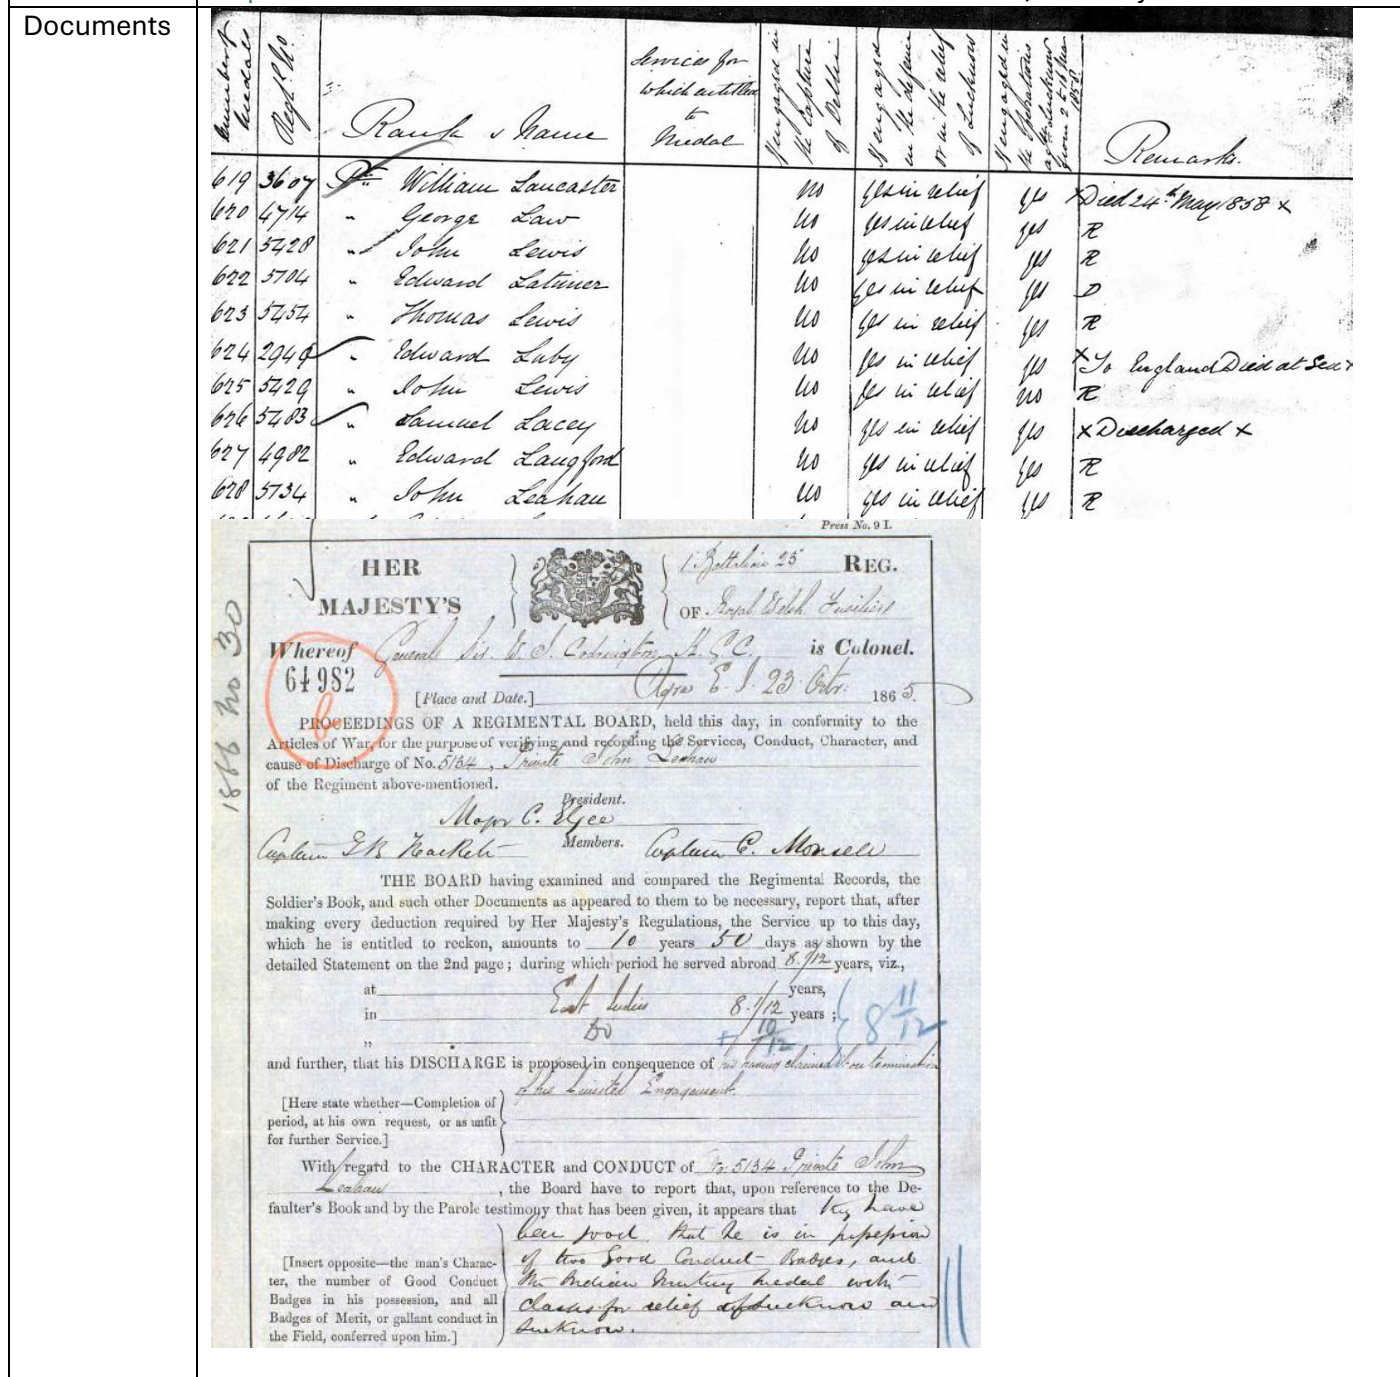 Documents
Number of Medals
Regtl No.
Rank & Name
Services for which entitled to Medal
If engaged in the Capture of Delhi
If engaged in the defence or in the relief of Lucknow
If engaged in the Operations at Lucknow from 2 to 16 Mar 1858
Remarks.
619 3607 Pte William Lancaster no yes in relief yes x Died 24th May 1858 x
620 4714 " George Law no yes in relief yes R
621 5428 " John Lewis no yes in relief yes R
622 5704 " Edward Latimer no yes in relief yes D
623 5454 " Thomas Lewis no yes in relief yes R
624 2949 " Edward Luby no yes in relief yes x To England Died at Sea x
625 5429 " John Lewis no yes in relief no R
626 5483 " Samuel Lacey no yes in relief yes x Discharged x
627 4982 " Edward Langford no yes in relief yes R
628 5734 " John Leahau no yes in relief yes R
Press No. 9 I.
HER MAJESTY'S
1 Battalion 23 REG.
OF Royal Welsh Fusiliers
Whereof General Sir W. J. Codrington K.G.C. is Colonel.
64982
6
1866 No 30
[Place and Date.] Agra E. I. 23 Octr. 1865.
PROCEEDINGS OF A REGIMENTAL BOARD, held this day, in conformity to the
Articles of War, for the purpose of verifying and recording the Services, Conduct, Character, and
cause of Discharge of No. 5134, Private John Leahau
of the Regiment above-mentioned.
President.
Major C. Elgee
Members.
Captain G B Hackett Captain C. Monsell
THE BOARD having examined and compared the Regimental Records, the
Soldier's Book, and such other Documents as appeared to them to be necessary, report that, after
making every deduction required by Her Majesty's Regulations, the Service up to this day,
which he is entitled to reckon, amounts to 10 years 50 days as shown by the
detailed Statement on the 2nd page; during which period he served abroad 8 1/12 years, viz.,
at years,
in East Indies 8 1/12 years;
" Do + 10/12
8 11/12
and further, that his DISCHARGE is proposed in consequence of his having claimed it on termination
of his Limited Engagement.
[Here state whether—Completion of
period, at his own request, or as unfit
for further Service.]
With regard to the CHARACTER and CONDUCT of No. 5134 Private John
Leahau, the Board have to report that, upon reference to the De-
faulter's Book and by the Parole testimony that has been given, it appears that they have
been good that he is in possession
of two Good Conduct Badges, and
the Indian Mutiny medal with
clasps for relief of Lucknow and
Lucknow.
[Insert opposite—the man's Charac-
ter, the number of Good Conduct
Badges in his possession, and all
Badges of Merit, or gallant conduct in
the Field, conferred upon him.]